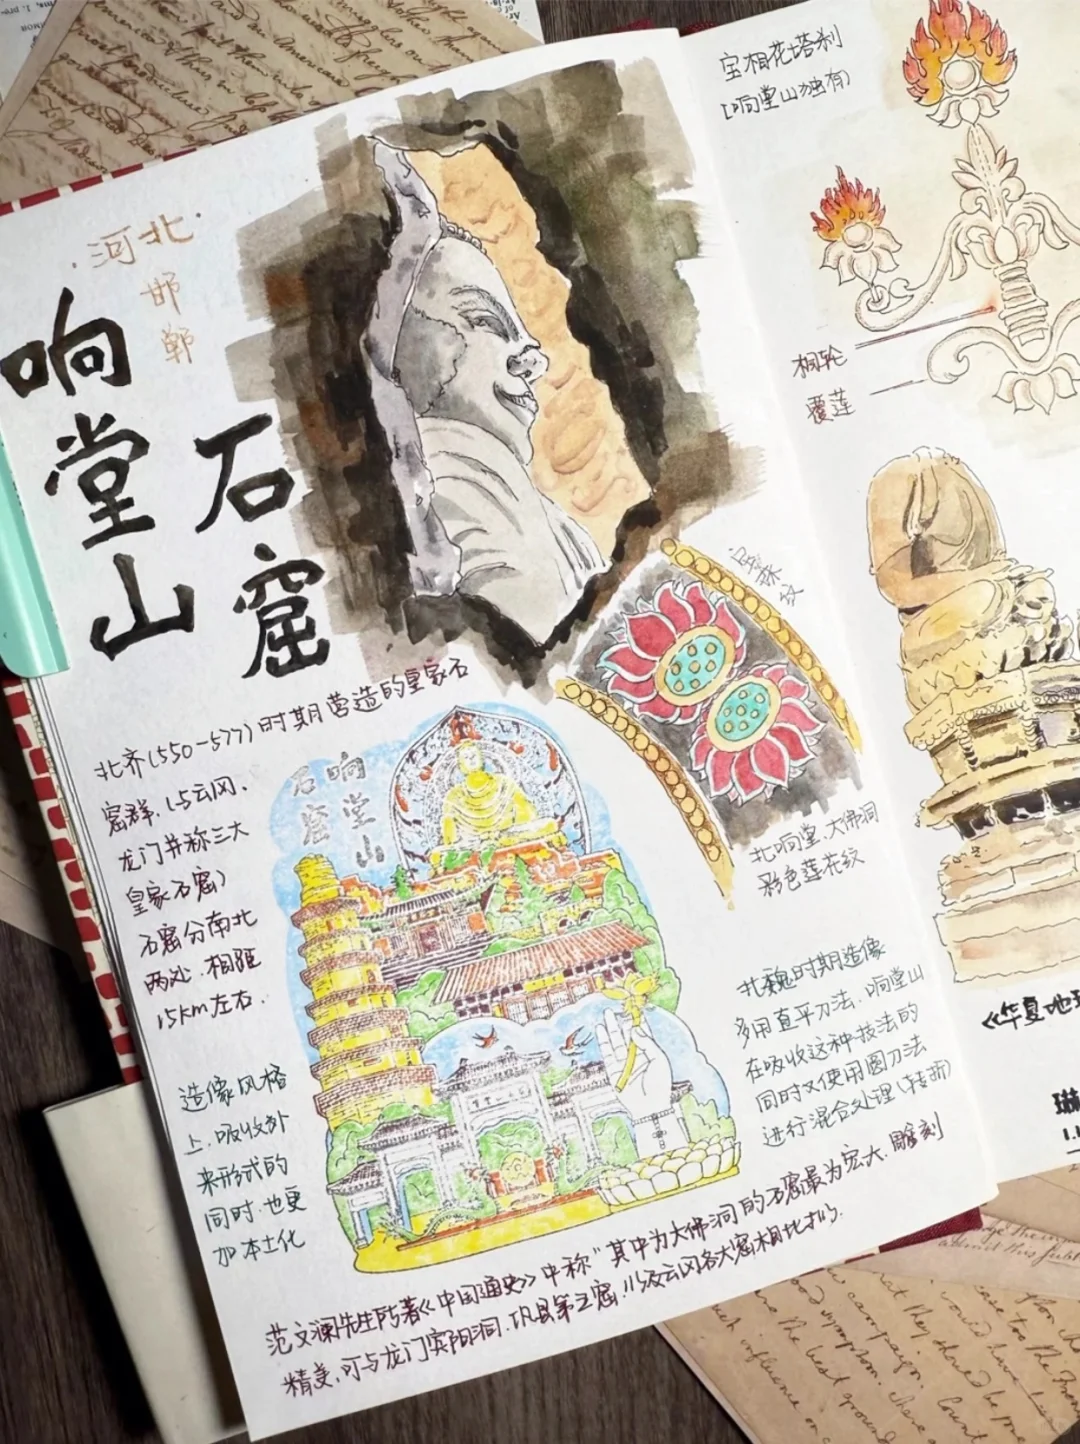 ·河北·
邯郸
响堂山
石窟
北齐(550-577)时期营造的皇家石
窟群.(与云冈、
龙门并称三大
皇家石窟)
石窟分南北
两处.相距
15km左右.
造像风格
上.吸收外
来形式的
同时.也更
加本土化
响堂山
石窟
连珠纹
北响堂.大佛洞
彩色莲花纹
北魏时期造像
多用直平刀法.响堂山
在吸收这种技法的
同时又使用圆刀法
进行混合处理(转折)
范文澜先生所著《中国通史》中称"其中为大佛洞的石窟最为宏大.雕刻
精美.可与龙门宾阳洞.巩县第三窟.以及云冈各大窟相比拟.
宝相花塔刹
[响堂山独有)
相轮
覆莲
《华夏地